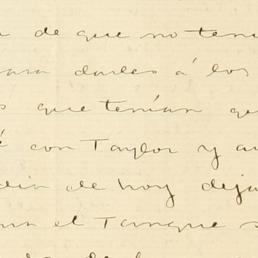 a de que no tení
para darles á los
s que tenían qu
é con Taylor y a
dia de hoy deja
el Tanque s